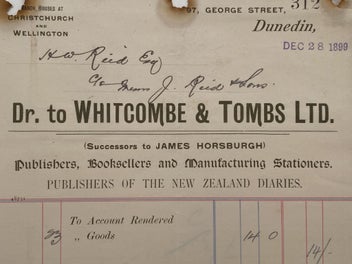 HOUSES AT
CHRISTCHURCH
AND
WELLINGTON
97, GEORGE STREET,
312
Dunedin,
DEC 28 1899
H. W. Reid Esq
c/o Messrs J. Reid & Sons.
Dr. to WHITCOMBE & TOMBS LTD.
(Successors to JAMES HORSBURGH)
Publishers, Booksellers and Manufacturing Stationers.
PUBLISHERS OF THE NEW ZEALAND DIARIES.
To Account Rendered
23 „ Goods 14 0
14/-